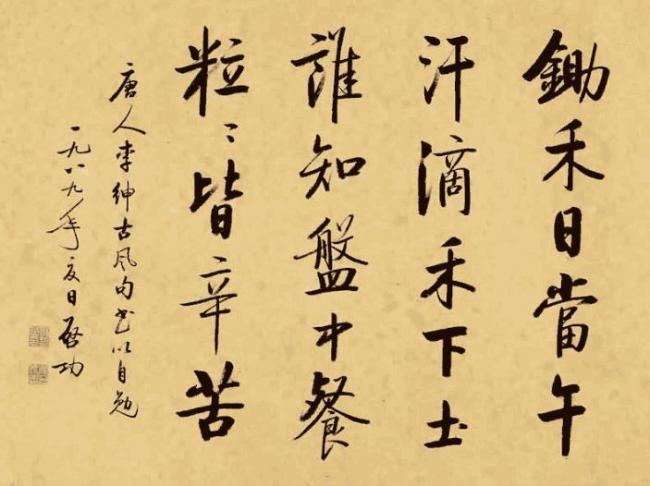 鋤禾日當午
汗滴禾下土
誰知盤中餐
粒〻皆辛苦
唐人李紳古風句書以自勉
一九八九年夏日啓功